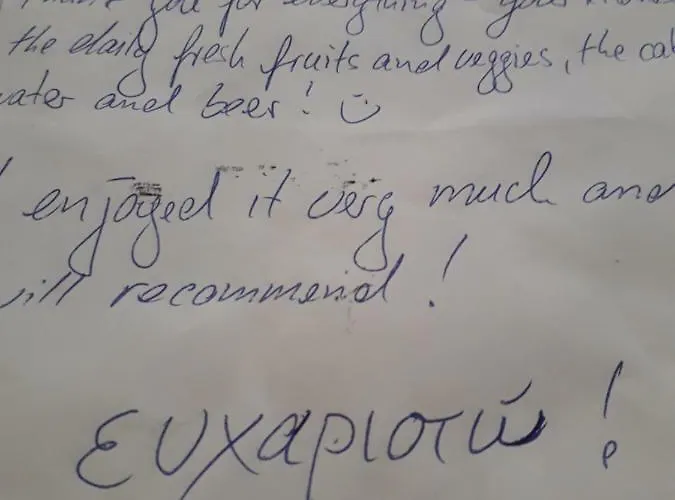 you for everything - your
the daily fresh fruits and veggies, the
water and beer! :)
enjoyed it very much and
will recommend!
ευχαριστώ!